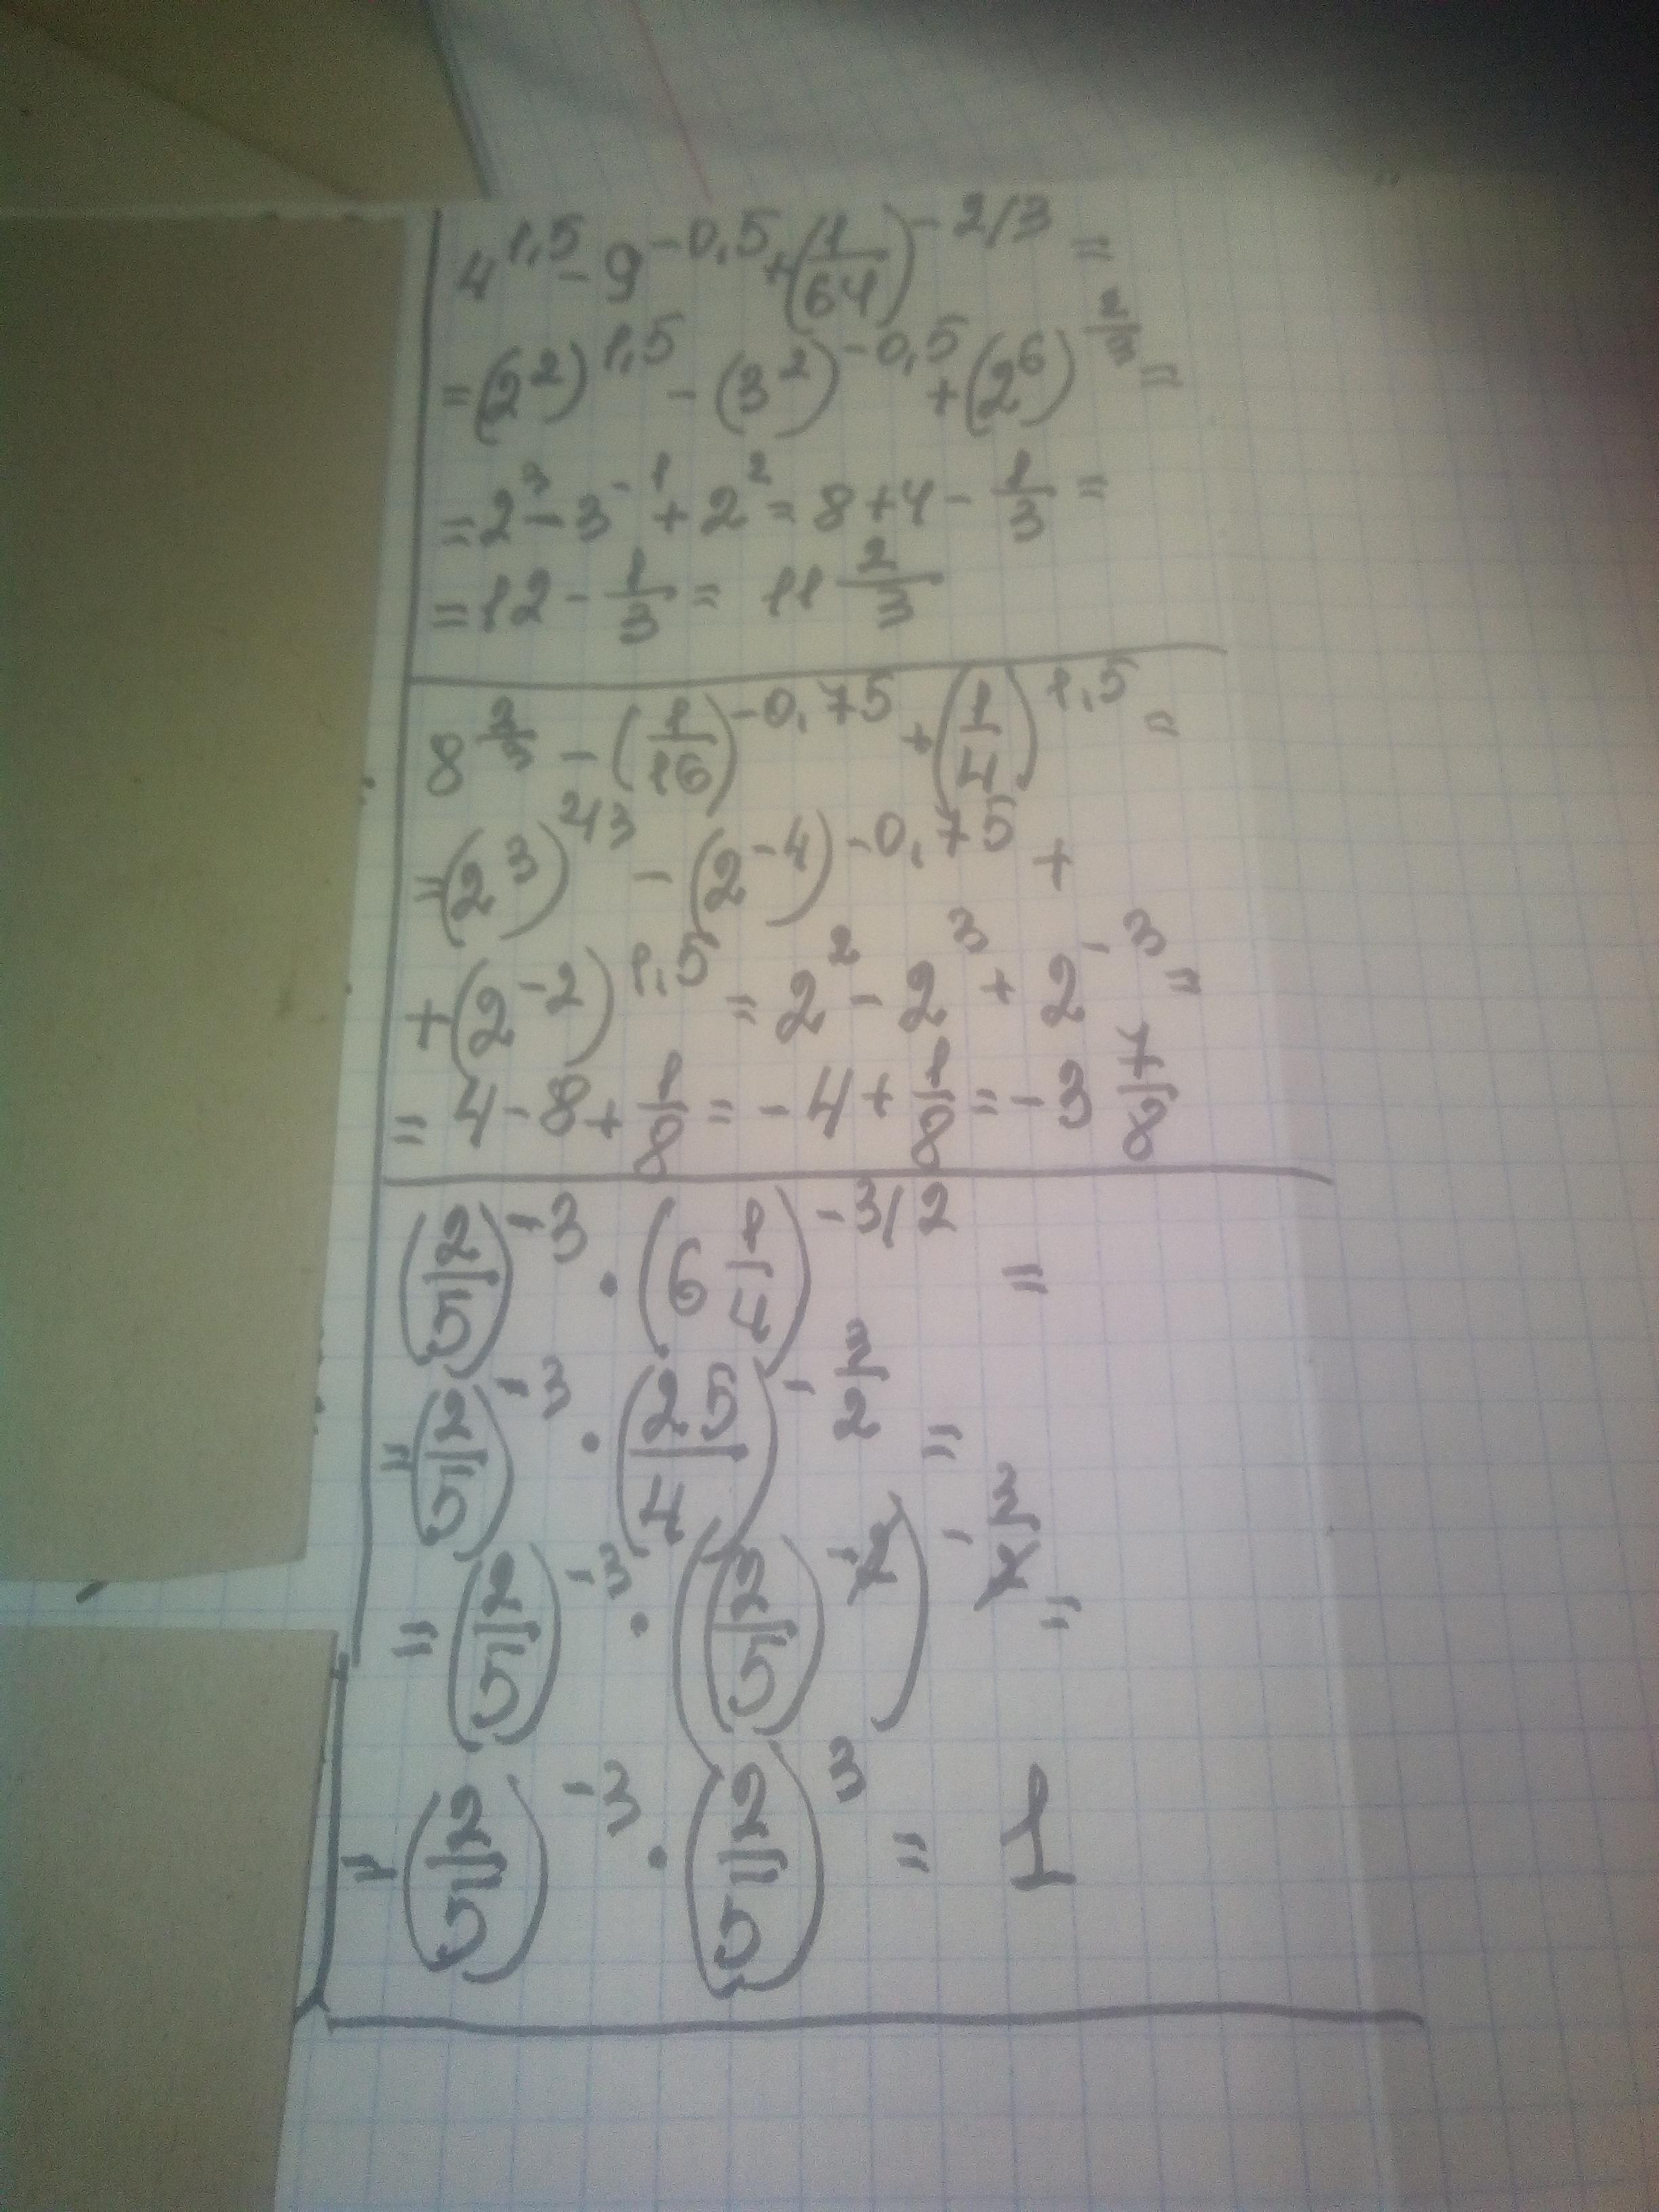 4^1,5 - 9^-0,5 + (1/64)^-2/3 =
= (2^2)^1,5 - (3^2)^-0,5 + (2^6)^2/3 =
= 2^3 - 3^-1 + 2^2 = 8 + 4 - 1/3 =
= 12 - 1/3 = 11 2/3
8^2/3 - (1/16)^-0,75 + (1/4)^1,5 =
= (2^3)^2/3 - (2^-4)^-0,75 +
+ (2^-2)^1,5 = 2^2 - 2^3 + 2^-3 =
= 4 - 8 + 1/8 = - 4 + 1/8 = - 3 7/8
(2/5)^-3 · (6 1/4)^-3/2 =
= (2/5)^-3 · (25/4)^-3/2 =
= (2/5)^-3 · ((2/5)^-2)^-3/2 =
= (2/5)^-3 · (2/5)^3 = 1